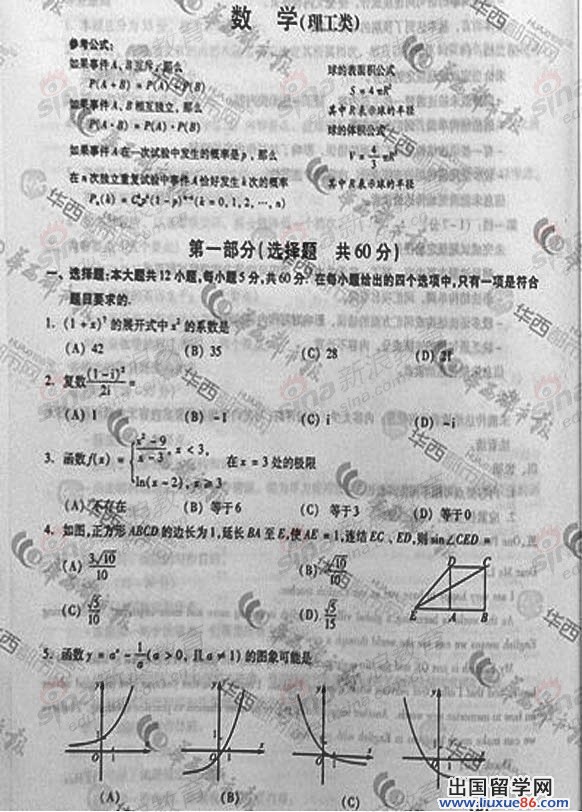 数 学(理工类)
参考公式:
如果事件A、B互斥,那么
P(A+B)=P(A)+P(B)
如果事件A、B相互独立,那么
P(A·B)=P(A)·P(B)
如果事件A在一次试验中发生的概率是p,那么
在n次独立重复试验中事件A恰好发生k次的概率
Pₙ(k)=Cₙᵏpᵏ(1-p)ⁿ⁻ᵏ(k=0,1,2,…,n)
球的表面积公式
S=4πR²
其中R表示球的半径
球的体积公式
V=4/3πR³
其中R表示球的半径
第一部分(选择题 共60分)
一、选择题:本大题共12小题,每小题5分,共60分.在每小题给出的四个选项中,只有一项是符合
题目要求的.
1. (1+x)⁷的展开式中x²的系数是
(A) 42 (B) 35 (C) 28 (D) 21
2. 复数(1-i)²/2i=
(A) 1 (B) -1 (C) i (D) -i
3. 函数f(x)={(x²-9)/(x-3), x<3, ln(x-2), x≥3 在x=3处的极限
(A) 不存在 (B) 等于6 (C) 等于3 (D) 等于0
4. 如图,正方形ABCD的边长为1,延长BA至E,使AE=1,连结EC、ED,则sin∠CED=
(A) 3√10/10 (B) √10/10
(C) √5/10 (D) √5/15
D C
E A B
5. 函数y=aˣ-1/a(a>0,且a≠1)的图象可能是
y x O 1
y x O 1
y x O 1
y x O 1
(A) (B) (C)
华西都市报
华西都市报
华西副刊网
sina新浪
出国留学网
www.liuxue86.com